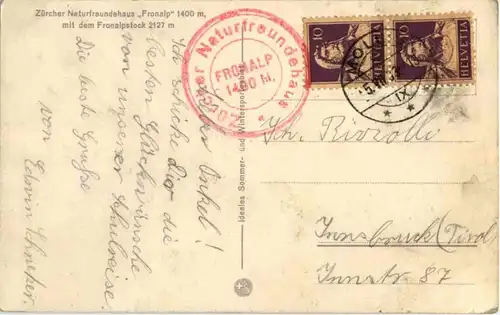 Zürcher Naturfreundehaus „Fronalp" 1400 m,
mit dem Fronalpstock 2127 m
Lieber Onkel!
Ich schicke Dir die
besten Glückwünsche
von unserer Schulreise.
Die beste Grüße
von Edwin
Ideales Sommer- und Wintersportgebiet
Zürcher Naturfreundehaus
FRONALP
1400 M.
10
HELVETIA
10
HELVETIA
IX
Rizzolli
Innsbruck (Tirol)
Innstr 87